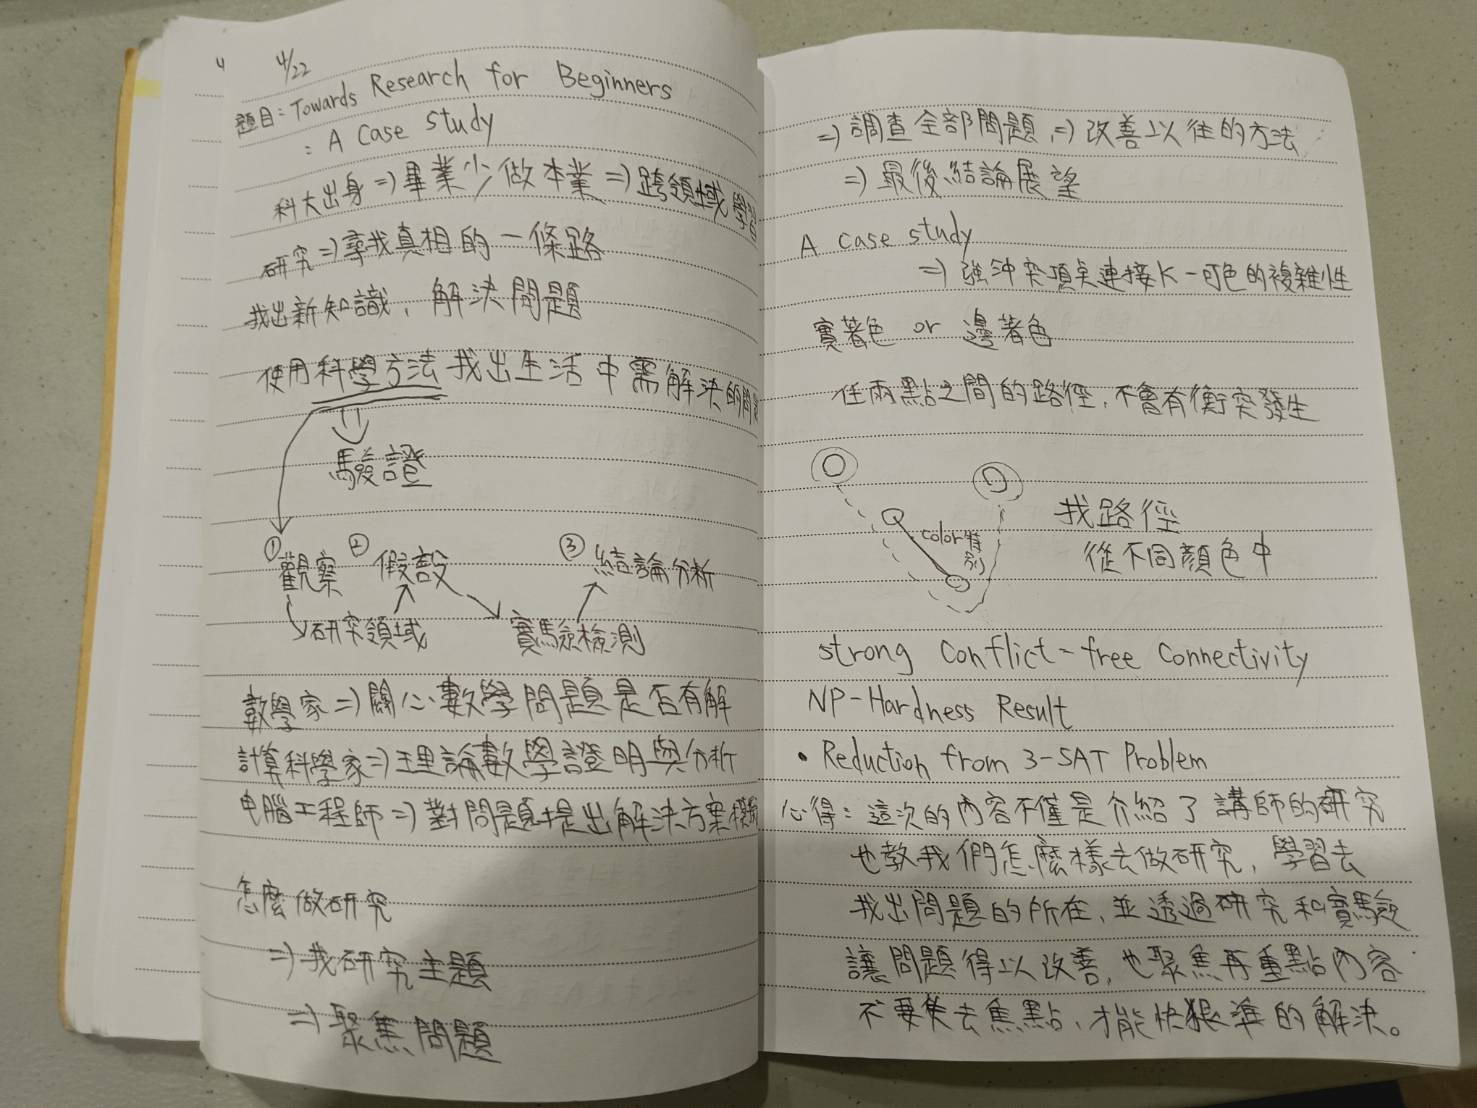 4/22
題目:Towards Research for Beginners
: A Case study
科大出身 => 畢業少做本業 => 跨領域學習
研究 => 尋找真相的一條路
找出新知識, 解決問題
使用科學方法找出生活中需解決的問
驗證
① 觀察 ② 假設 ③ 結論分析
研究領域 實驗檢測
數學家 => 關心數學問題是否有解
計算科學家 => 理論數學證明與分析
电腦工程師 => 對問題提出解決方案
怎麼做研究
=> 找研究主題
=> 聚焦問題
=> 調查全部問題, => 改善以往的方法
=> 最後結論展望
A case study
=> 強沖突頂点連接K-可色的複雜性
實著色 or 邊著色
任兩點之間的路徑, 不會有衝突發生
color特別
找路徑
從不同顏色中
strong Conflict-free Connectivity
NP-Hardness Result
• Reduction from 3-SAT Problem
心得: 這次的內容不僅是介紹了講師的研究
也教我們怎麼樣去做研究, 學習去
找出問題的所在, 並透過研究和實驗
讓問題得以改善, 也聚焦再重點內容
不要失去焦點, 才能快狠準的解決。